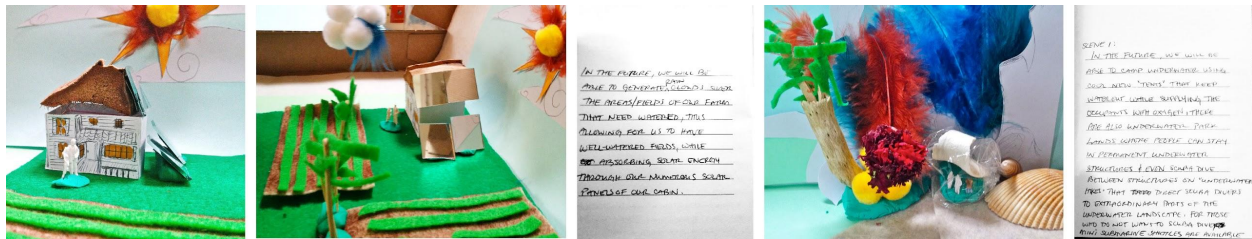 IN THE FUTURE, WE WILL BE
ABLE TO GENERATE RAIN CLOUDS OVER
THE AREAS/FIELDS OF OUR FARM
THAT NEED WATERED, THUS
ALLOWING FOR US TO HAVE
WELL-WATERED FIELDS, WHILE
ABSORBING SOLAR ENERGY
THROUGH OUR NUMEROUS SOLAR
PANELS OF OUR CABIN.
SCENE 1:
IN THE FUTURE, WE WILL BE
ABLE TO CAMP UNDERWATER USING
COOL NEW 'TENTS' THAT KEEP
WATER OUT WHILE SUPPLYING THE
OCCUPANTS WITH OXYGEN. THERE
ARE ALSO UNDERWATER PARK
LANDS WHERE PEOPLE CAN STAY
IN PERMANENT UNDERWATER
STRUCTURES & EVEN SCUBA DIVE
BETWEEN STRUCTURES ON 'UNDERWATER
THAT DIRECT SCUBA DIVERS
TO EXTRAORDINARY PARTS OF THE
UNDERWATER LANDSCAPE. FOR THOSE
WHO DO NOT WANT TO SCUBA DIVE,
MINI SUBMARINE SHUTTLES ARE AVAILABLE